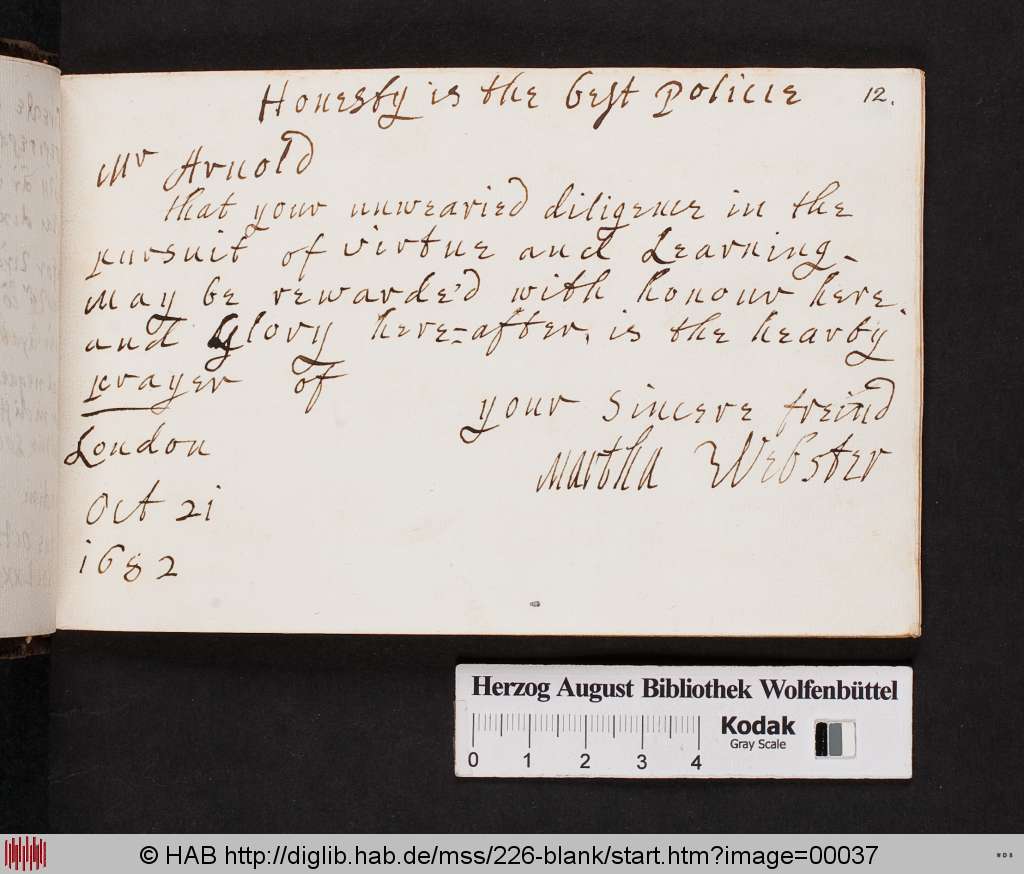 Honesty is the best Policie
12.
Mr Arnold
that your unwearied diligence in the
pursuit of virtue and Learning
may be reward'd with honour here
and Glory here=after, is the hearty
prayer of
your sincere freind
Martha Webster
London
Oct 21
1682
Herzog August Bibliothek Wolfenbüttel
Kodak
Gray Scale
0 1 2 3 4
© HAB http://diglib.hab.de/mss/226-blank/start.htm?image=00037
WDB